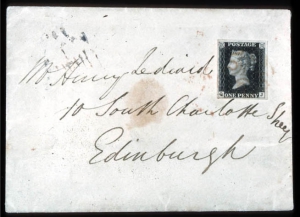 POSTAGE
ONE PENNY
Henry
10 South Charlotte
Edinburgh